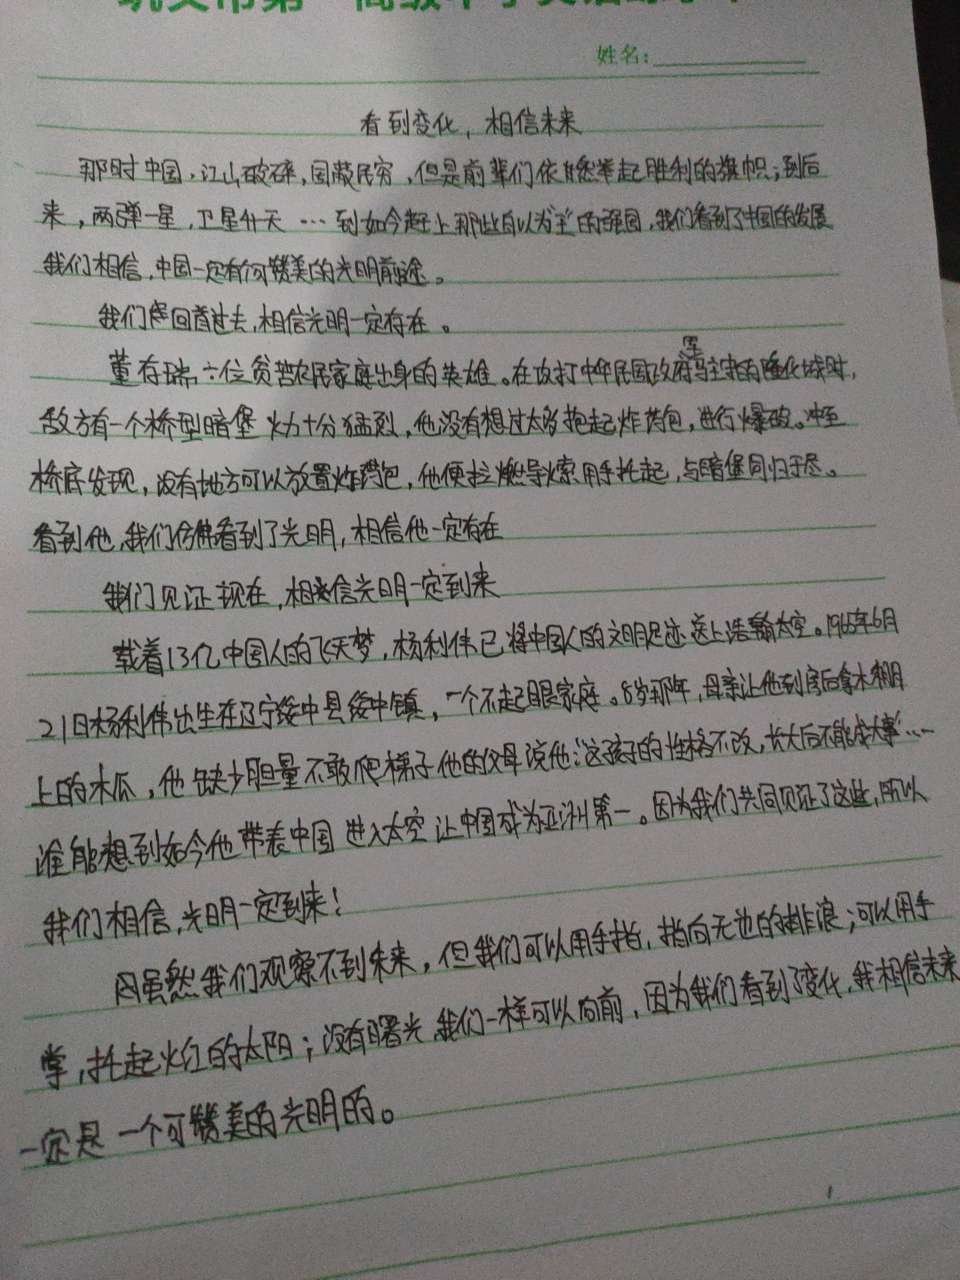 姓名:
看到变化，相信未来
那时中国，江山破碎，国敝民穷，但是前辈们依然举起胜利的旗帜；到后
来，两弹一星，卫星升天…到如今赶上那些自以为"主"的强国，我们看到了中国的发展
我们相信，中国一定有可赞美的光明前途。
我们回首过去，相信光明一定存在。
董存瑞一位贫苦农民家庭出身的英雄。在攻打中华民国政府军驻守的隆化城时，
敌方有一个桥型暗堡火力十分猛烈，他没有想过太多抱起炸药包，进行爆破。冲至
桥底发现，没有地方可以放置炸药包，他便拉燃导火索用手托起，与暗堡同归于尽。
看到他，我们仿佛看到了光明，相信他一定存在
我们见证现在，相信光明一定到来
载着13亿中国人的飞天梦，杨利伟已将中国人的文明足迹送上浩瀚太空。1965年6月
21日杨利伟出生在辽宁绥中县绥中镇，一个不起眼家庭。8岁那年，母亲让他到房后拿木棚
上的木瓜，他缺少胆量不敢爬梯子他的父母说他：这孩子的性格不改，长大后不能成大事"…
谁能想到如今他带表中国进入太空让中国成为亚洲第一。因为我们共同见证了这些，所以
我们相信，光明一定到来！
虽然我们观察不到未来，但我们可以用手指，指向无边的排浪；可以用手
掌，托起火红的太阳；没有曙光，我们一样可以向前，因为我们看到了变化，我相信未来
一定是一个可赞美的光明的。